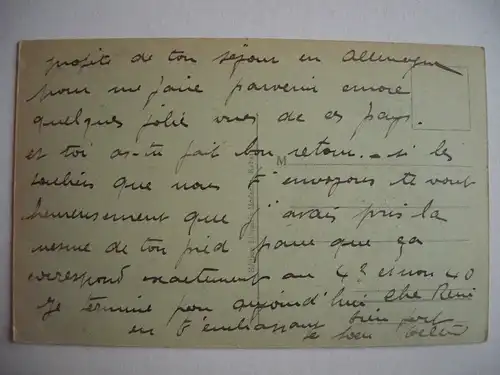 profite de ton séjour en Allemagne
pour me faire parvenir encore
quelques jolie vues de ces pays.
et toi as-tu fait bon retour. - si les
souliers que nous t'envoyons te vont
heureusement que j'avais pris la
mesure de ton pied parce que ça
correspond exactement au 43 et non 40
Je termine pour aujourd'hui che René
en t'embrassant bien fort
M